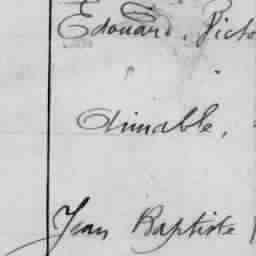 Edouard, Victo
Aimable,
Jean Baptiste